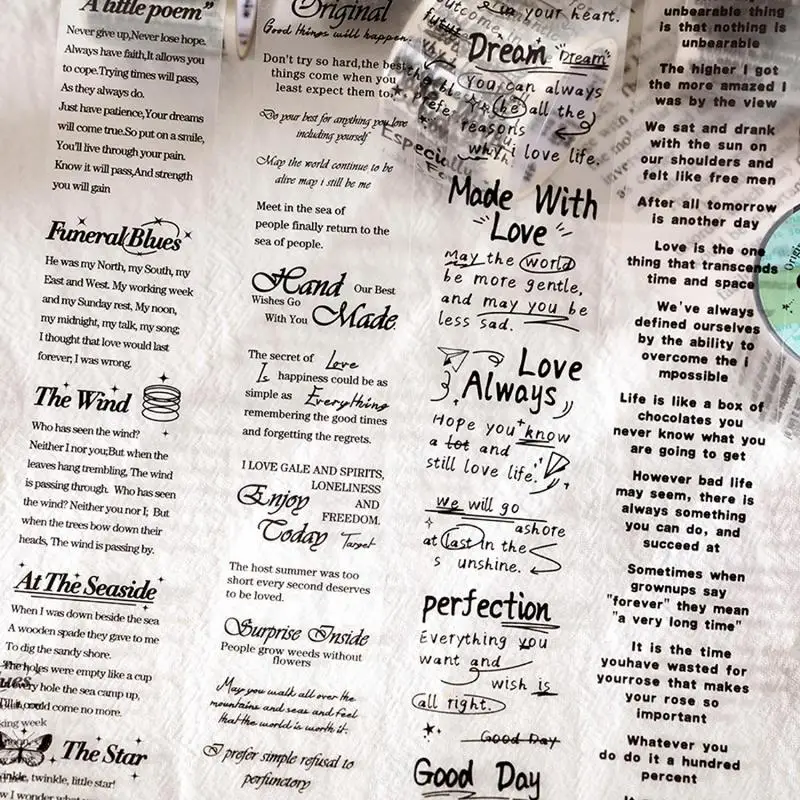 A little poem”
Never give up,Never lose hope.
Always have faith,It allows you
to cope.Trying times will pass,
As they always do.
Just have patience,Your dreams
will come true.So put on a smile,
You'll live through your pain.
Know it will pass,And strength
you will gain
Funeral Blues
He was my North, my South, my
East and West. My working week
and my Sunday rest, My noon,
my midnight, my talk, my song;
I thought that love would last
forever; I was wrong.
The Wind
Who has seen the wind?
Neither I nor you;But when the
leaves hang trembling, The wind
is passing through. Who has seen
the wind? Neither you nor I; But
when the trees bow down their
heads, The wind is passing by.
At The Seaside
When I was down beside the sea
A wooden spade they gave to me
To dig the sandy shore.
The holes were empty like a cup
every hole the sea camp up,
Till it could come no more.
king week
The Star
inkle, twinkle, little star!
w I wonder what
Original
Good things will happen.
Don't try so hard,the best
things come when you
least expect them to.
Do your best for anything you love
including yourself
May the world continue to be
alive may i still be me
Meet in the sea of
people finally return to the
sea of people.
Hand Our Best
Wishes Go
With You Made
The secret of Love
Is happiness could be as
simple as Everything
remembering the good times
and forgetting the regrets.
I LOVE GALE AND SPIRITS,
LONELINESS
Enjoy AND
FREEDOM.
Today Target
The host summer was too
short every second deserves
to be loved.
Surprise Inside
People grow weeds without
flowers
May you walk all over the
mountains and seas and feel
that the world is worth it.
I prefer simple refusal to
perfunctory
outcome in your heart.
future
Dream "Dream"
You can always
be all the
prefer reasons
why i love life.
Especially
Made With
Love
May the world
be more gentle,
and may you be
less sad.
Love
Always
Hope you know
a lot and
still love life.
we will go
ashore
at last in the
s unshine.
perfection
Everything you
want and
wish is
all right.
Good Day
Good Day
unbearable thing
is that nothing is
unbearable
The higher I got
the more amazed I
was by the view
We sat and drank
with the sun on
our shoulders and
felt like free men
After all tomorrow
is another day
Love is the one
thing that transcends
time and space
We've always
defined ourselves
by the ability to
overcome the i
mpossible
Life is like a box of
chocolates you
never know what you
are going to get
However bad life
may seem, there is
always something
you can do, and
succeed at
Sometimes when
grownups say
"forever" they mean
"a very long time"
It is the time
youhave wasted for
yourrose that makes
your rose so
important
Whatever you
do do it a hundred
percent